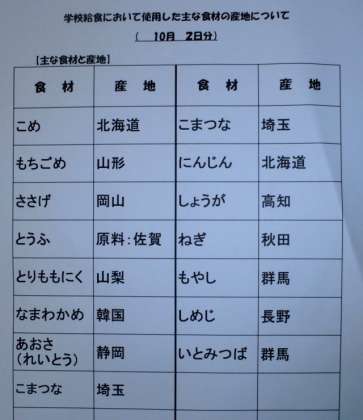 学校給食において使用した主な食材の産地について
( 10月 2日分)
【主な食材と産地】
食 材 産 地 食 材 産 地
こめ 北海道 こまつな 埼玉
もちごめ 山形 にんじん 北海道
ささげ 岡山 しょうが 高知
とうふ 原料:佐賀 ねぎ 秋田
とりももにく 山梨 もやし 群馬
なまわかめ 韓国 しめじ 長野
あおさ
(れいとう) 静岡 いとみつば 群馬
こまつな 埼玉